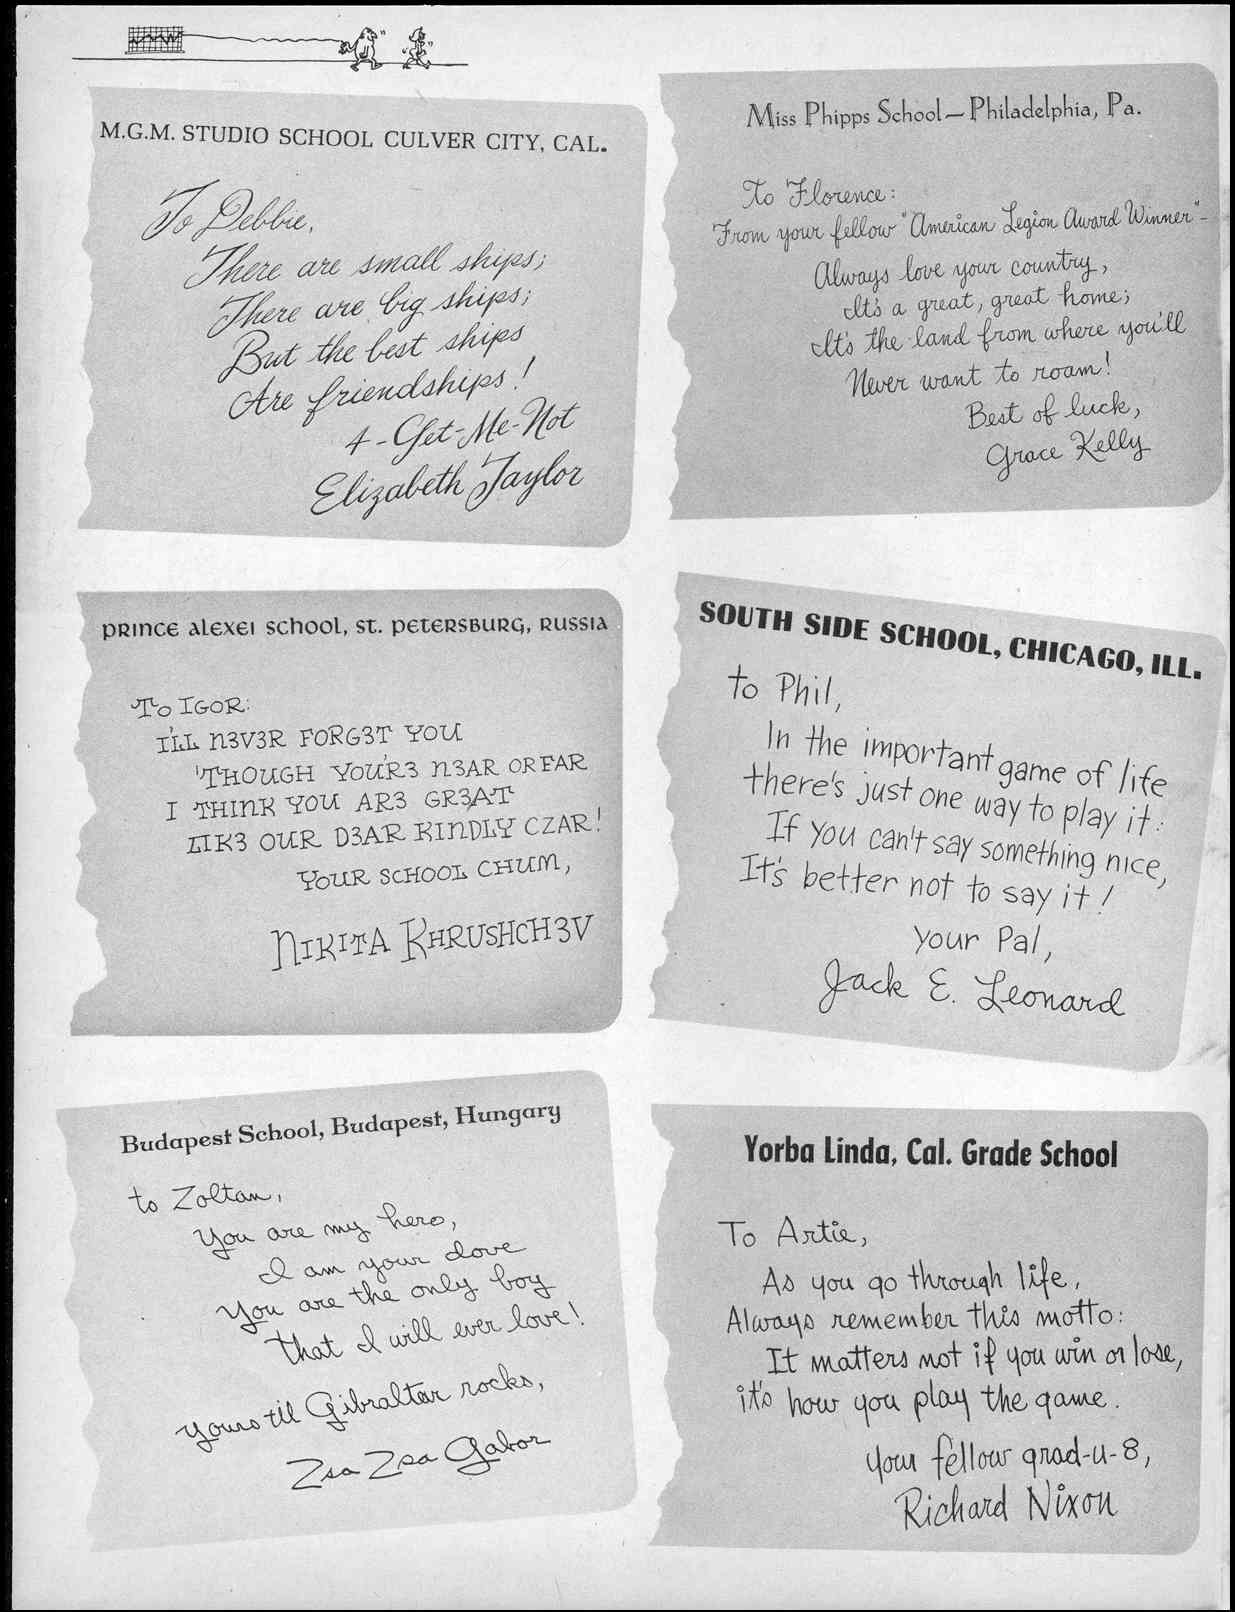 M.G.M. STUDIO SCHOOL CULVER CITY, CAL.
To Debbie,
There are small ships;
There are big ships;
But the best ships
Are friendships!
4-Get-Me-Not
Elizabeth Taylor
Miss Phipps School—Philadelphia, Pa.
To Florence:
From your fellow "American Legion Award Winner"-
Always love your country,
It's a great, great home;
It's the land from where you'll
Never want to roam!
Best of luck,
Grace Kelly
PRINCE ALEXEI SCHOOL, ST. PETERSBURG, RUSSIA
TO IGOR:
I'LL N3V3R FORG3T YOU
'THOUGH YOU'R3 N3AR OR FAR
I THINK YOU AR3 GR3AT
LIK3 OUR D3AR KINDLY CZAR!
YOUR SCHOOL CHUM,
NIKITA KHRUSHCH3V
SOUTH SIDE SCHOOL, CHICAGO, ILL.
to Phil,
In the important game of life
there's just one way to play it:
If you can't say something nice,
It's better not to say it!
your Pal,
Jack E. Leonard
Budapest School, Budapest, Hungary
to Zoltan,
You are my hero,
I am your dove
You are the only boy
that I will ever love!
yours til Gibraltar rocks,
Zsa Zsa Gabor
Yorba Linda, Cal. Grade School
To Artie,
As you go through life,
Always remember this motto:
It matters not if you win or lose,
it's how you play the game.
your fellow grad-u-8,
Richard Nixon